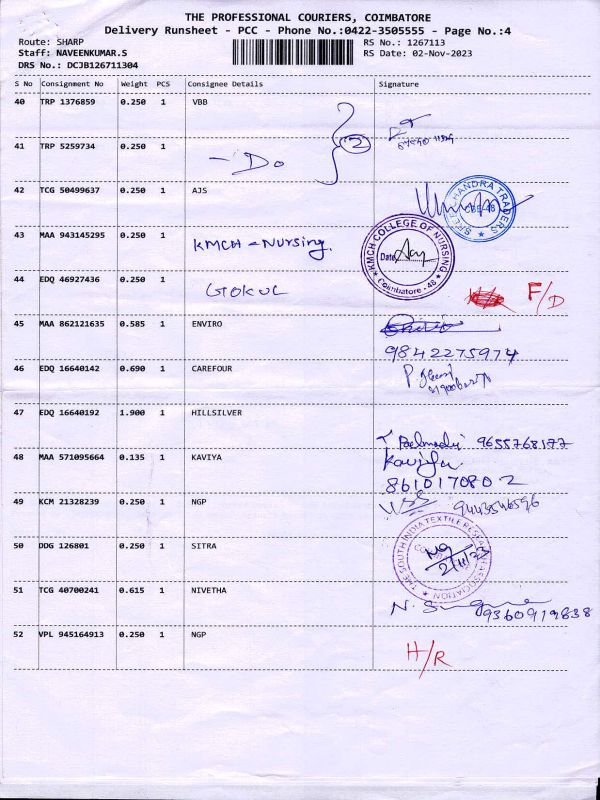 THE PROFESSIONAL COURIERS, COIMBATORE
Delivery Runsheet - PCC - Phone No.:0422-3505555 - Page No.:4
Route: SHARP RS No.: 1267113
Staff: NAVEENKUMAR.S RS Date: 02-Nov-2023
DRS No.: DCJB126711304
S No Consignment No Weight PCS Consignee Details Signature
40 TRP 1376859 0.250 1 VBB
2
41 TRP 5259734 0.250 1 - Do
42 TCG 50499637 0.250 1 AJS
SREE CHANDRA TRADERS CBE-48
43 MAA 943145295 0.250 1 KMCH - Nursing.
KMCH COLLEGE OF NURSING Date Coimbatore - 48
44 EDQ 46927436 0.250 1 GOKUL F/D
45 MAA 862121635 0.585 1 ENVIRO
9842275974
46 EDQ 16640142 0.690 1 CAREFOUR
47 EDQ 16640192 1.900 1 HILLSILVER
9655768177
48 MAA 571095664 0.135 1 KAVIYA Kaviya
8610170802
49 KCM 21328239 0.250 1 NGP 9443546596
50 DDG 126801 0.250 1 SITRA
THE SOUTH INDIA TEXTILE RESEARCH ASSOCIATION
2/11/23
51 TCG 40700241 0.615 1 NIVETHA
9360919838
52 VPL 945164913 0.250 1 NGP H/R